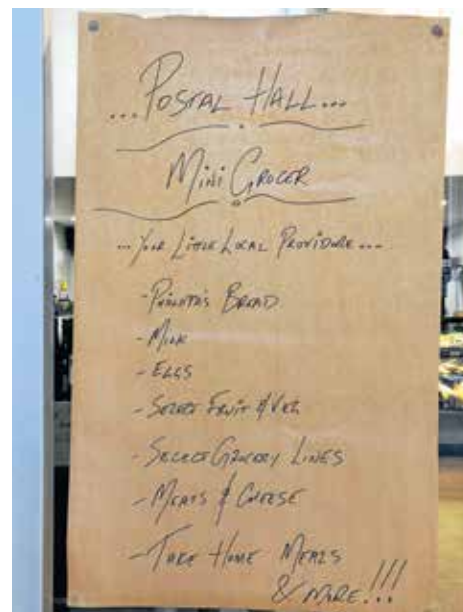 ...Postal Hall...
Mini Grocer
...Your Little Local Providore...
- Bread
- Milk
- Eggs
- Select Fruit & Veg
- Select Grocery Lines
- Meats & Cheese
- Take Home Meals
& More!!!